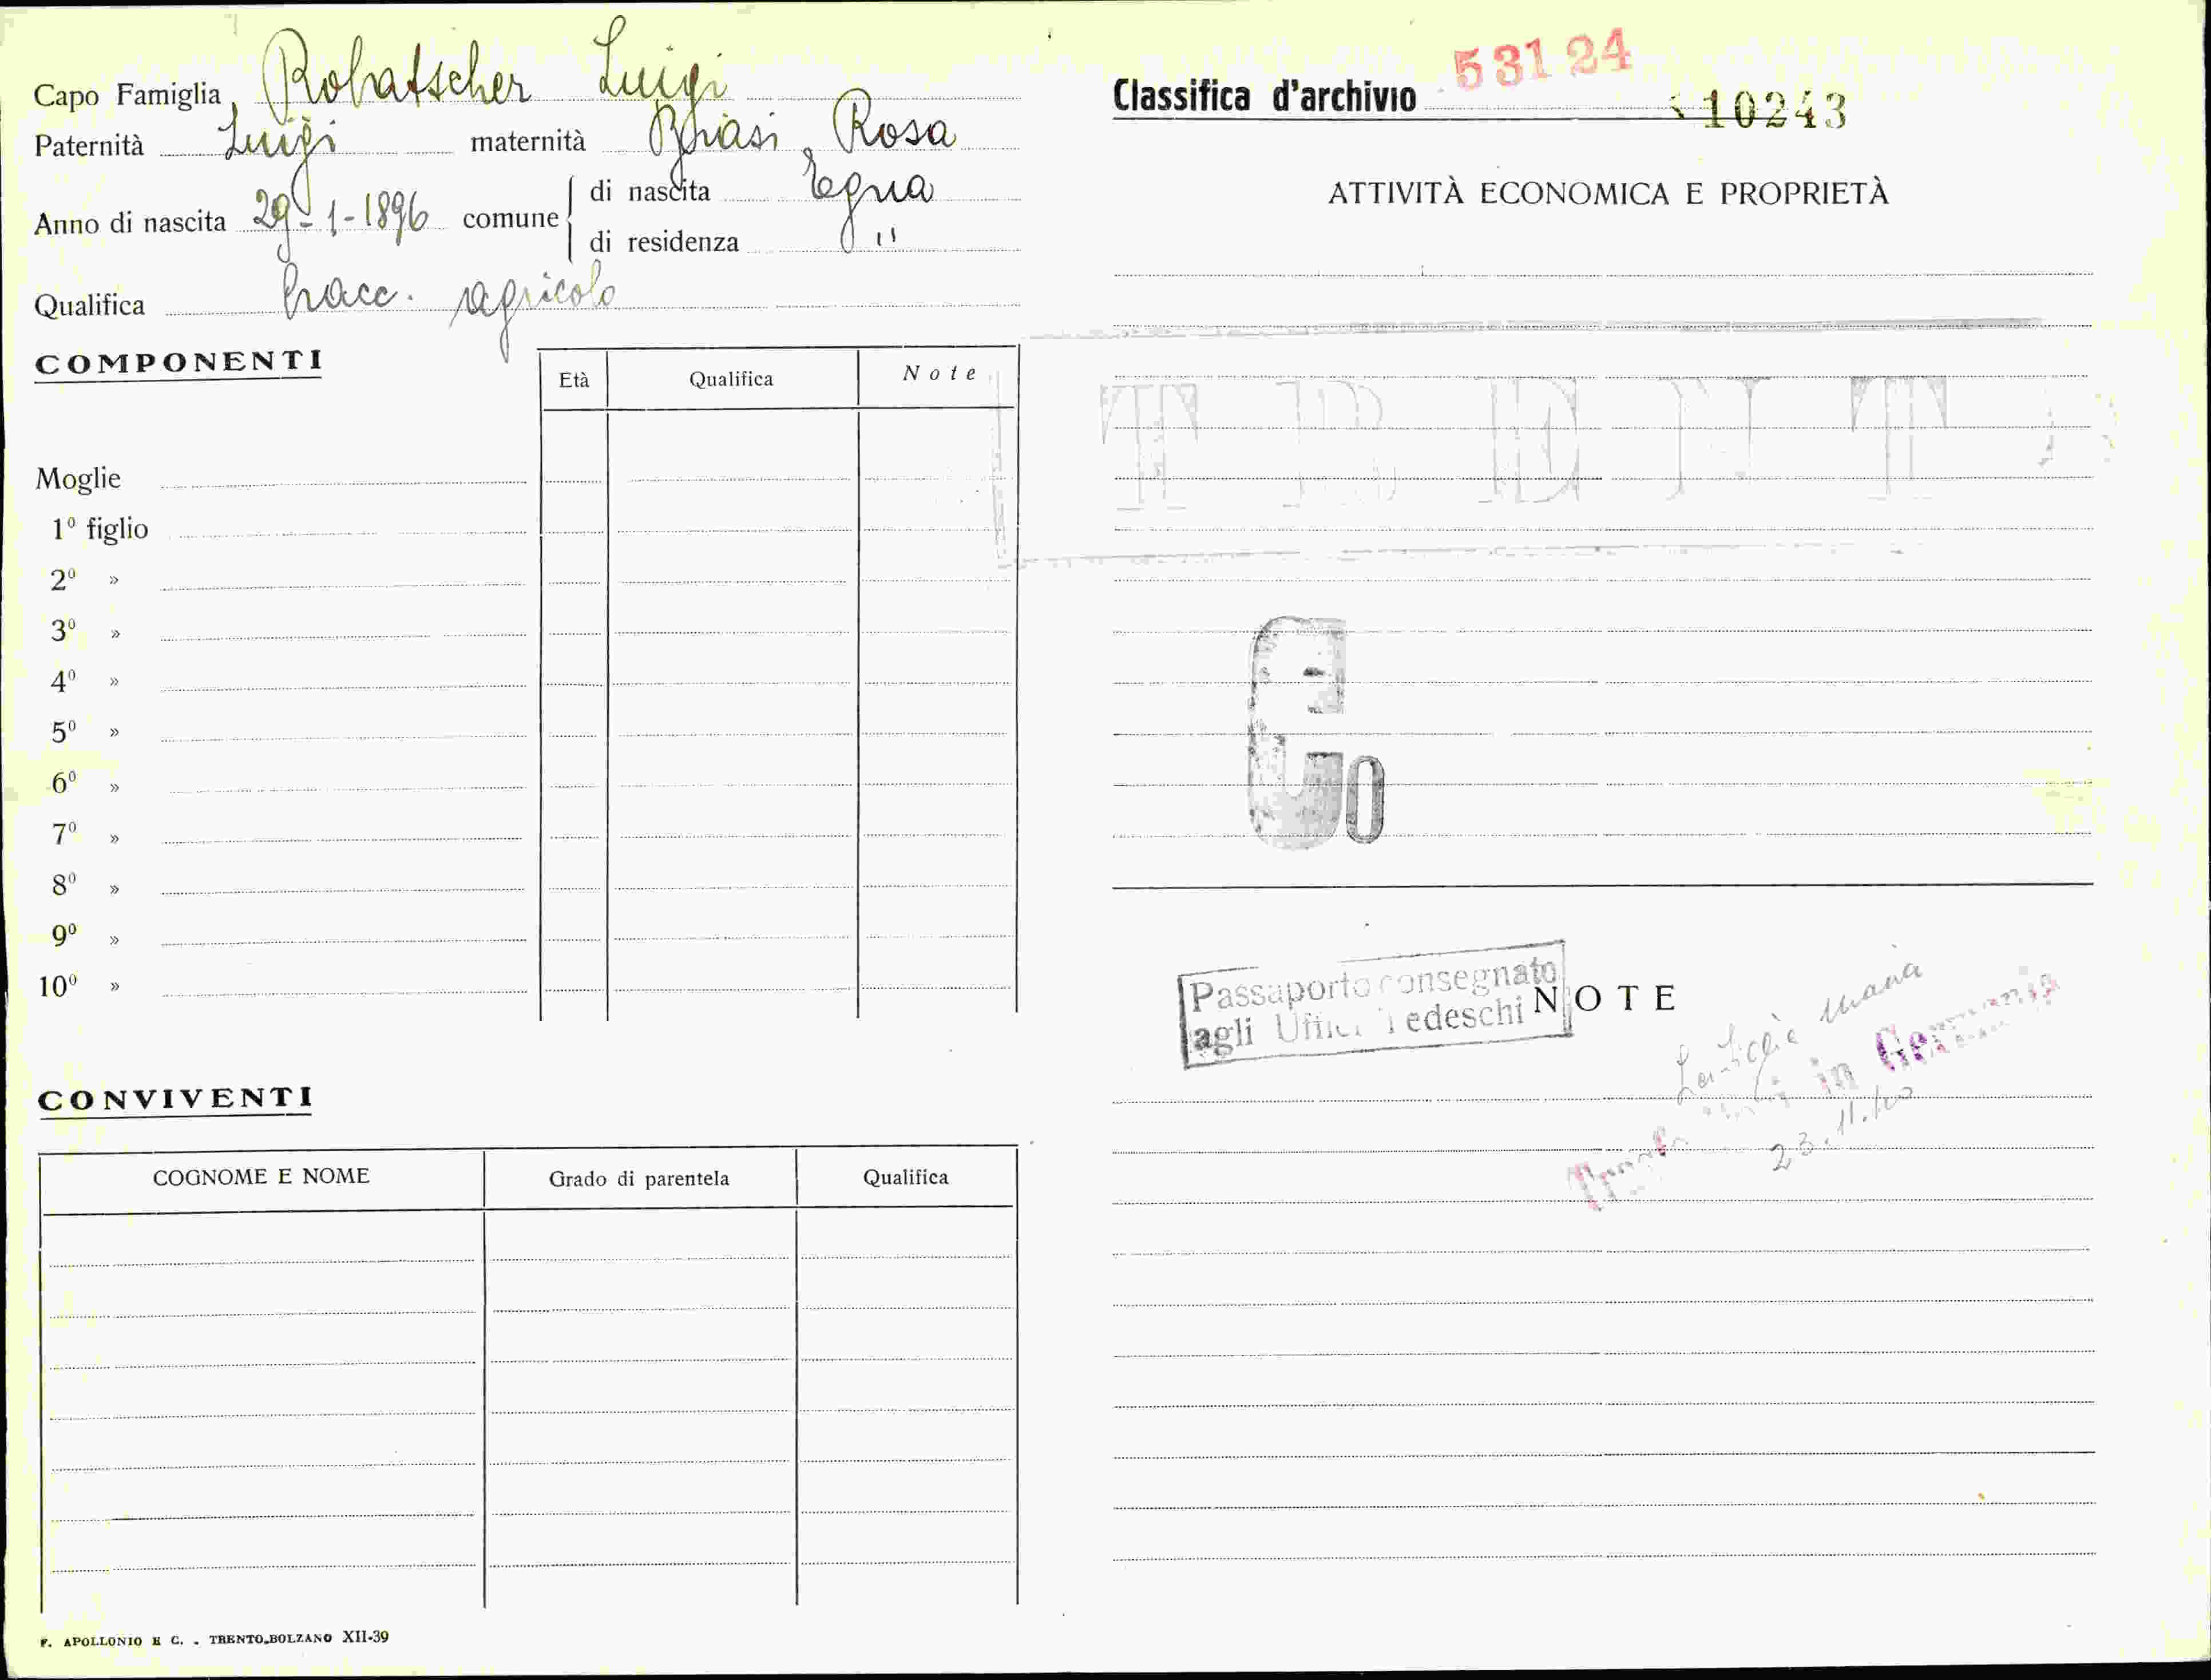 Capo Famiglia Robatscher Luigi
Paternità Luigi maternità Rosa
Anno di nascita 29-1-1896 comune di nascita Egna
di residenza "
Qualifica bracc. agricolo
COMPONENTI
Età Qualifica Note
Moglie
1º figlio
2º »
3º »
4º »
5º »
6º »
7º »
8º »
9º »
10º »
CONVIVENTI
COGNOME E NOME Grado di parentela Qualifica
F. APOLLONIO E C. - TRENTO-BOLZANO XII-39
53124
Classifica d'archivio 10243
ATTIVITÀ ECONOMICA E PROPRIETÀ
TRENTO
Passaporto consegnato
agli Uffici Tedeschi
NOTE
in Germania